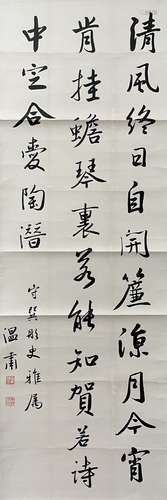 清風終日自開簾涼月今宵
肯挂蟾琴裏若能知賀若詩
中定合愛陶潛
守巽彤史雅属
溫肅